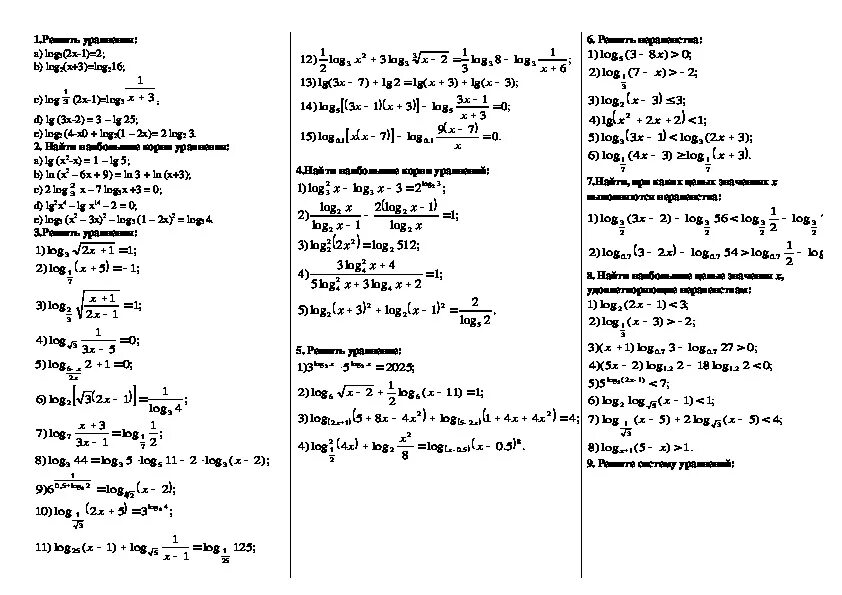 1.Решить уравнения:
a) log₅(2x-1)=2;
b) log₂(x+3)=log₂16;
c) log 1/3 (2x-1)=log₃ 1/(x + 3);
d) lg (3x-2) = 3 – lg 25;
2. Найти наибольшие корни уравнения:
a) lg (x²-x) = 1 – lg 5;
b) ln (x² – 6x + 9) = ln 3 + ln (x+3);
c) 2 log ²₃ x – 7 log₃x +3 = 0;
d) lg²x⁴ – lg x¹⁴ – 2 = 0;
3.Решить уравнения:
1) log₃ √(2x + 1) = 1;
2) log_(1/7) (x + 5) = -1;
3) log_(2/3) √((x + 1)/(2x - 1)) = 1;
4) log_√3 1/(3x - 5) = 0;
6) log₂[√3(2x - 1)] = 1/(log₃ 4);
7) log₇ (x + 3)/(3x - 1) = log_(1/7) 1/2;
8) log₃ 44 = log₃ 5 · log₅ 11 - 2 · log₃ (x - 2);
11) log₂₅(x - 1) + log_√5 1/(x - 1) = log_(1/25) 125;
12) 1/2 log₃ x² + 3 log₃ ∛(x - 2) = 1/3 log₃ 8 - log₃ 1/(x + 6);
13) lg(3x - 7) + lg 2 = lg(x + 3) + lg(x - 3);
14) log₅[(3x - 1)(x + 3)] - log₅ (3x - 1)/(x + 3) = 0;
15) log₀.₁[x(x - 7)] - log₀.₁ 9(x - 7)/x = 0.
4.Найти наибольшие корни уравнений:
2) log₂ x/(log₂ x - 1) - 2(log₂ x - 1)/(log₂ x) = 1;
3) log²₂(2x²) = log₂ 512;
4) (3 log²₄ x + 4)/(5 log²₄ x + 3 log₄ x + 2) = 1;
5) log₂(x + 3)² + log₂(x - 1)² = 2/(log₅ 2).
5. Решить уравнение:
2) log₆ √(x - 2) + 1/2 log₆ (x - 11) = 1;
3) log_(2x+1)(5 + 8x - 4x²) + log_(5-2x)(1 + 4x + 4x²) = 4;
4) log²_(1/2) (4x) + log₂ x²/8 = log_(x-0.5)(x - 0.5)⁸.
6. Решить неравенства:
1) log₅ (3 - 8x) > 0;
2) log_(1/3) (7 - x) > -2;
3) log₂(x - 3) ≤ 3;
4) lg(x² + 2x + 2) < 1;
5) log₃(3x - 1) < log₃(2x + 3);
6) log_(1/7) (4x - 3) ≥ log_(1/7) (x + 3).
7.Найти, при каких целых значениях x
выполняются неравенства:
1) log_(3/2) (3x - 2) - log_(3/2) 56 < log_(3/2) 1/2 - log_(3/2)
2) log₀.₇(3 - 2x) - log₀.₇ 54 > log₀.₇ 1/2 - log
8. Найти наибольшие целые значения x,
удовлетворяющие неравенствам:
1) log₂ (2x - 1) < 3;
2) log_(1/3) (x - 3) > -2;
3)(x + 1) log₀.₇ 3 - log₀.₇ 27 > 0;
4)(5x - 2) log₁.₂ 2 - 18 log₁.₂ 2 < 0;
6) log₂ log_√5 (x - 1) < 1;
7) log_(1/√3) (x - 5) + 2 log_√3 (x - 5) < 4;
8) log_(x+1)(5 - x) > 1.
9. Решите систему уравнений: